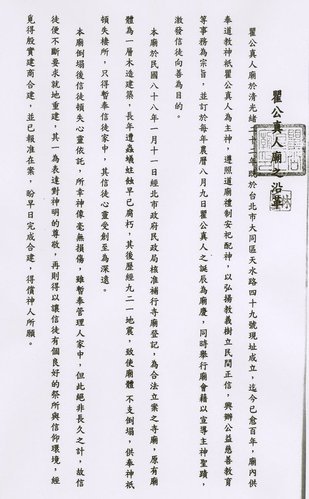 瞿公真人廟之沿革
瞿公真人廟於清光緒二十三年時於台北市大同區天水路四十九號現址成立，迄今已愈百年，廟內供
奉道教神祇瞿公真人為主神，遵照道廟禮制安祀配神，以弘揚教義樹立民間正信，興辦公益慈善教育
等事務為宗旨，並訂於每年農曆八月九日瞿公真人之誕辰為廟慶，同時舉行廟會藉以宣導主神聖蹟，
激發信徒向善為目的。
本廟於民國八十八年一月十一日經北市政府民政局核准補行寺廟登記，為合法立案之寺廟，原有廟
體為一層木造建築，長年遭蟲蟻蛀蝕早已腐朽，其後歷經九二一地震，致使廟體不支倒塌，供奉神祇
頓失棲所，只得暫奉信徒家中，其信徒心靈受創至為深遠。
本廟倒塌後信徒頓失心靈依託，所幸神像毫無損傷，雖暫奉管理人家中，但此絕非長久之計，故信
徒便不斷要求就地重建，其一為表達對神明的尊敬，再則得以讓信徒有個良好的祭所與信仰環境，經
覓得殷實建商合建，並已報准在案，盼早日完成合建，得償神人所願。